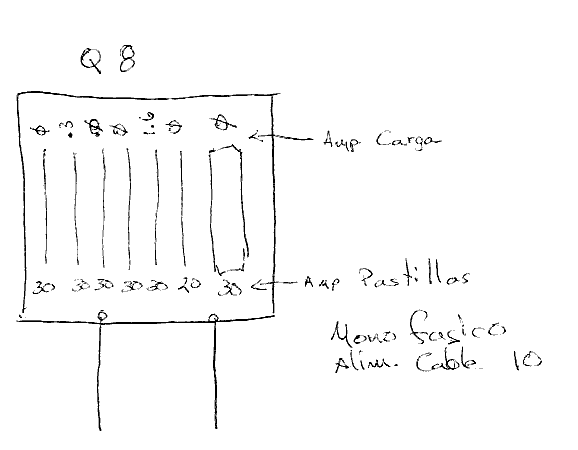 Q 8
Amp Carga
30 30 30 30 30 20 30
Amp Pastillas
Mono fasico
Alim. Cable 10